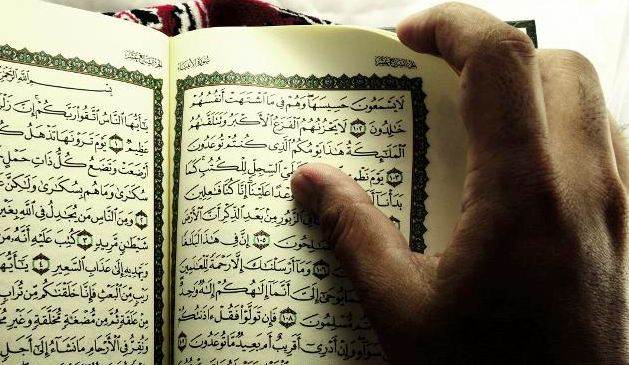 الجزء السابع عشر
سورة الأنبياء
لَا يَسْمَعُونَ حَسِيسَهَا وَهُمْ فِي مَا ٱشْتَهَتْ أَنفُسُهُمْ
خَٰلِدُونَ ١٠٢ لَا يَحْزُنُهُمُ ٱلْفَزَعُ ٱلْأَكْبَرُ وَتَتَلَقَّىٰهُمُ
ٱلْمَلَٰٓئِكَةُ هَٰذَا يَوْمُكُمُ ٱلَّذِي كُنتُمْ تُوعَدُونَ
١٠٣ يَوْمَ ٱلسِّجِلِّ لِلْكُتُبِ كَمَا
بَدَأْنَا عَلَيْنَآ إِنَّا كُنَّا فَٰعِلِينَ
ٱلزَّبُورِ مِنۢ بَعْدِ ٱلذِّكْرِ أَنَّ ٱلْأَرْضَ
١٠٥ إِنَّ فِي هَٰذَا لَبَلَٰغًا
١٠٦ وَمَآ أَرْسَلْنَٰكَ إِلَّا رَحْمَةً لِّلْعَٰلَمِينَ
يُوحَىٰٓ إِلَيَّ أَنَّمَآ إِلَٰهُكُمْ إِلَٰهٌ وَٰحِدٌ
مُّسْلِمُونَ ١٠٨ فَإِن تَوَلَّوْا۟ فَقُلْ ءَاذَنتُكُمْ
سَوَآءٍ وَإِنْ أَدْرِيٓ أَقَرِيبٌ أَم بَعِيدٌ مَّا تُوعَدُونَ
الجزء السابع عشر
بِسْمِ ٱللَّهِ ٱلرَّحْمَٰنِ
يَٰٓأَيُّهَا ٱلنَّاسُ ٱتَّقُوا۟ رَبَّكُمْ إِنَّ
عَظِيمٌ ١ يَوْمَ تَرَوْنَهَا تَذْهَلُ
أَرْضَعَتْ وَتَضَعُ كُلُّ ذَاتِ حَمْلٍ
سُكَٰرَىٰ وَمَا هُم بِسُكَٰرَىٰ وَلَٰكِنَّ
٢ وَمِنَ ٱلنَّاسِ مَن يُجَٰدِلُ فِي ٱللَّهِ بِغَيْرِ
شَيْطَٰنٍ مَّرِيدٍ ٣ كُتِبَ عَلَيْهِ أَنَّهُۥ مَن
وَيَهْدِيهِ إِلَىٰ عَذَابِ ٱلسَّعِيرِ ٤ يَٰٓأَيُّهَا
رَيْبٍ مِّنَ ٱلْبَعْثِ فَإِنَّا خَلَقْنَٰكُم مِّن تُرَابٍ
مِنْ عَلَقَةٍ ثُمَّ مِن مُّضْغَةٍ مُّخَلَّقَةٍ وَغَيْرِ
وَنُقِرُّ فِي ٱلْأَرْحَامِ مَا نَشَآءُ إِلَىٰٓ أَجَلٍ